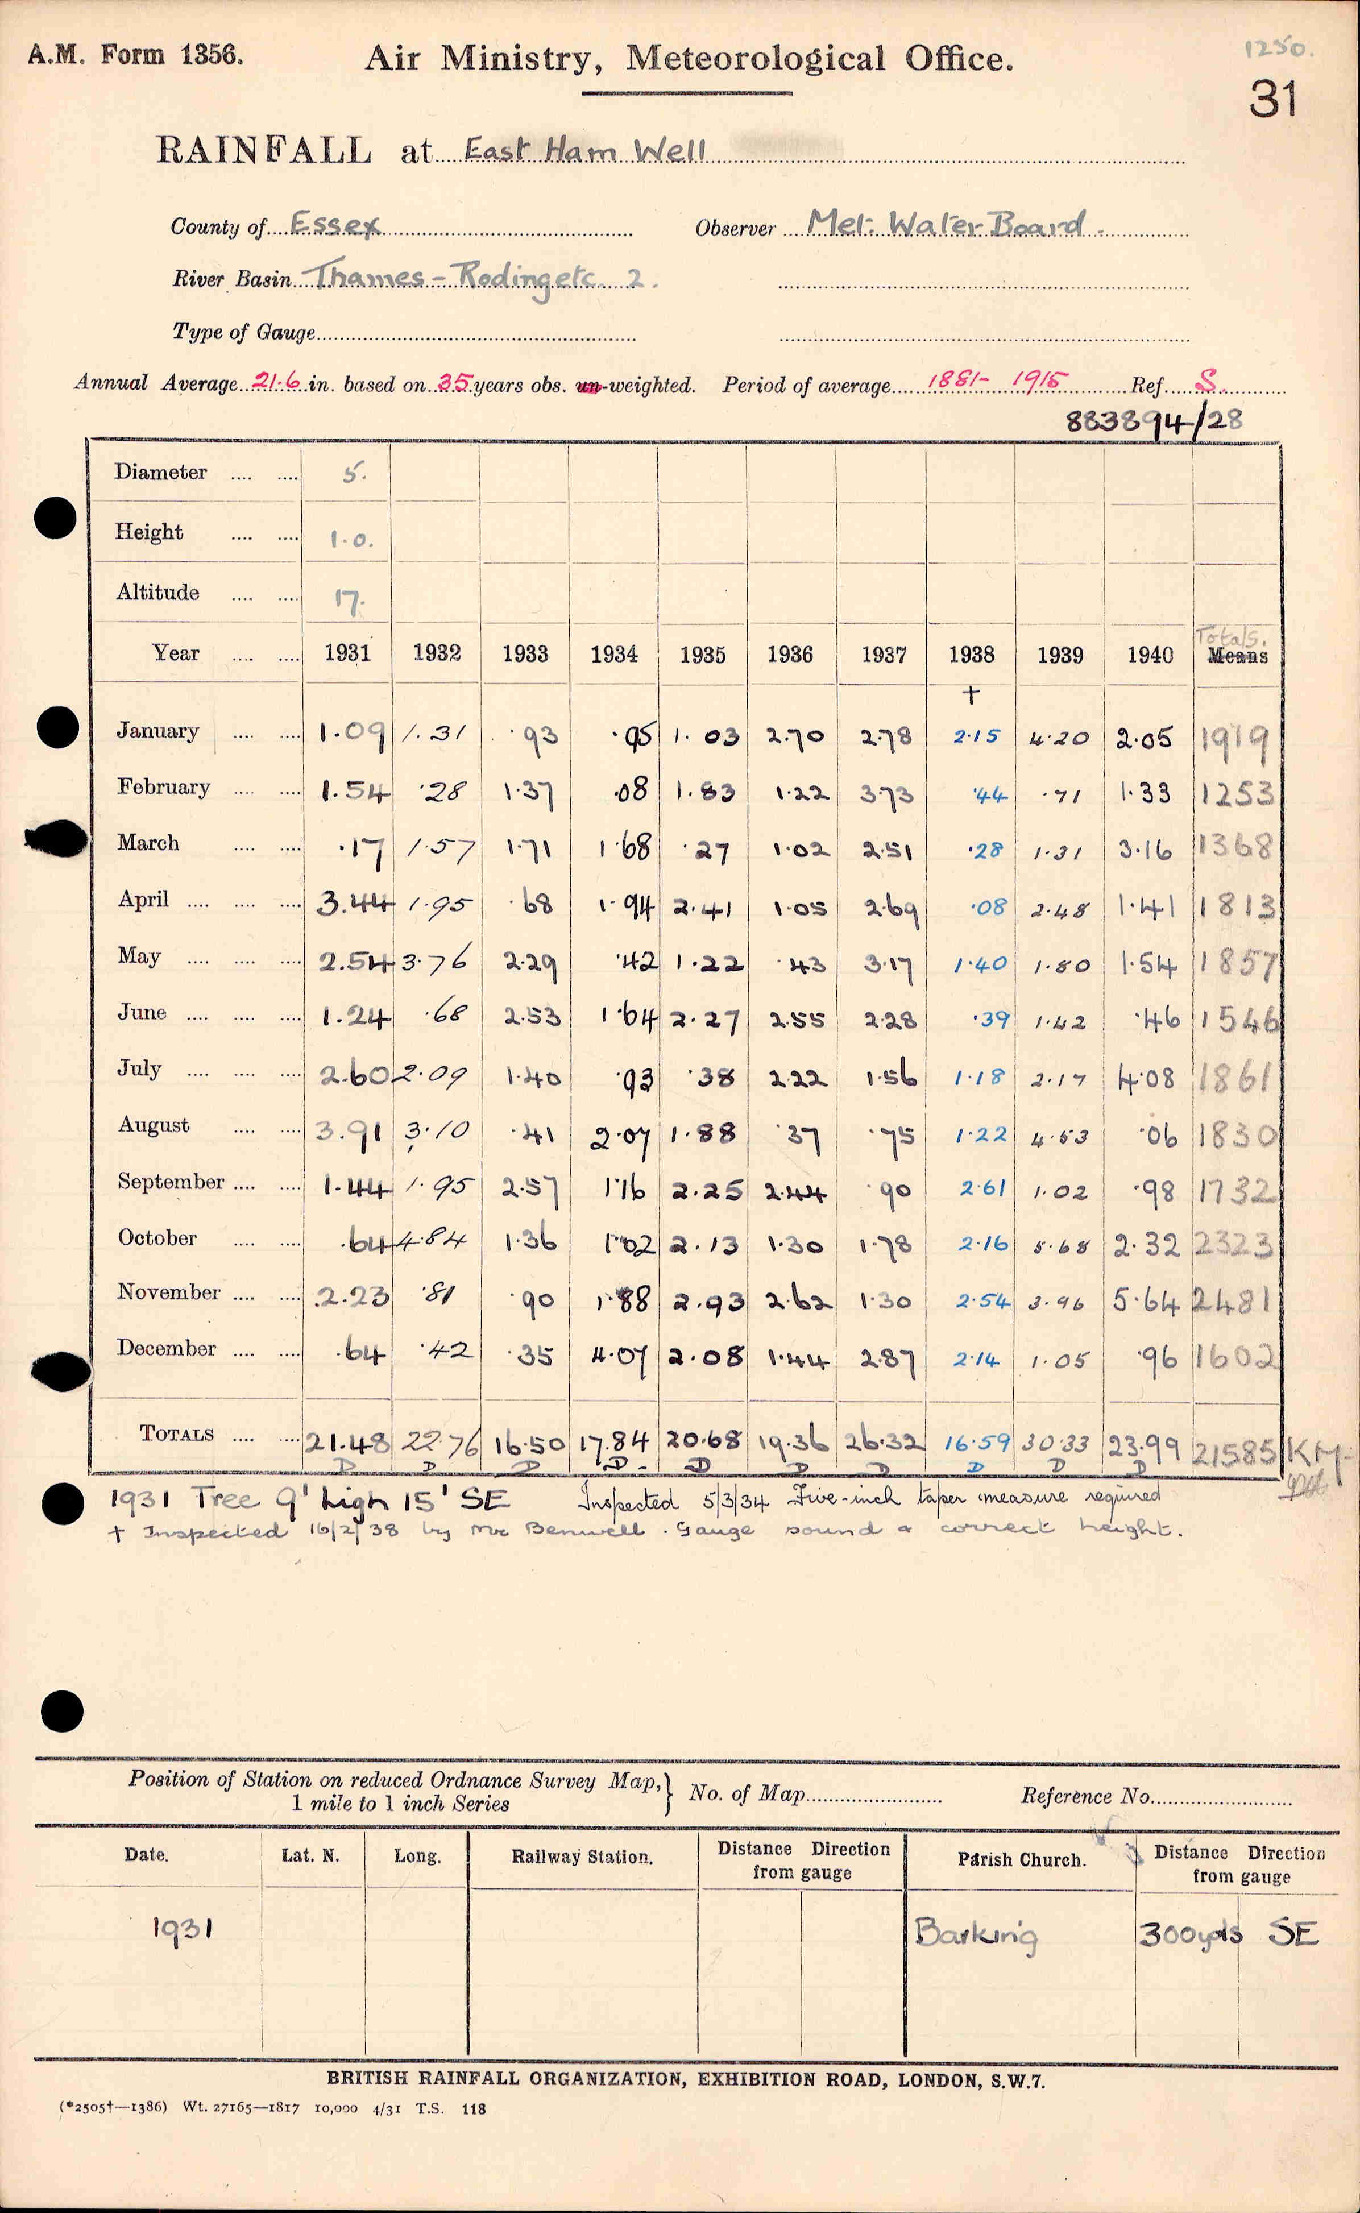 A.M. Form 1356. Air Ministry, Meteorological Office. 1250.
31
RAINFALL at East Ham Well
County of Essex Observer Met. Water Board.
River Basin Thames - Roding etc. 2.
Type of Gauge
Annual Average 21.6 in. based on 35 years obs. un-weighted. Period of average 1881- 1915 Ref. S.
883894/28
Diameter .... .... 5.
Height .... .... 1.0.
Altitude .... .... 17.
Totals.
Year .... .... 1931 1932 1933 1934 1935 1936 1937 1938 1939 1940 Means
†
January .... .... 1.09 1.31 .93 .95 1.03 2.70 2.78 2.15 4.20 2.05 1919
February .... .... 1.54 .28 1.37 .08 1.83 1.22 3.73 .44 .71 1.33 1253
March .... .... .17 1.57 1.71 1.68 .27 1.02 2.51 .28 1.31 3.16 1368
April .... .... .... 3.44 1.95 .68 1.94 2.41 1.05 2.69 .08 2.48 1.41 1813
May .... .... .... 2.54 3.76 2.29 .42 1.22 .43 3.17 1.40 1.80 1.54 1857
June .... .... .... 1.24 .68 2.53 1.64 2.27 2.55 2.28 .39 1.42 .46 1546
July .... .... .... 2.60 2.09 1.40 .93 .38 2.22 1.56 1.18 2.17 4.08 1861
August .... .... 3.91 3.10 .41 2.07 1.88 .37 .75 1.22 4.53 .06 1830
September .... .... 1.44 1.95 2.57 1.16 2.25 2.44 .90 2.61 1.02 .98 1732
October .... .... .64 4.84 1.36 1.02 2.13 1.30 1.78 2.16 5.68 2.32 2323
November .... .... 2.23 .81 .90 1.88 2.93 2.62 1.30 2.54 3.96 5.64 2481
December .... .... .64 .42 .35 4.07 2.08 1.44 2.87 2.14 1.05 .96 1602
TOTALS .... .... 21.48 22.76 16.50 17.84 20.68 19.36 26.32 16.59 30.33 23.99 21585 KM
D D D D D D D D D D
1931 Tree 9' high 15' SE Inspected 5/3/34 Five-inch taper measure required
† Inspected 16/2/38 by Mr Benwell. Gauge sound & correct height.
Position of Station on reduced Ordnance Survey Map,
1 mile to 1 inch Series
No. of Map Reference No.
Date. Lat. N. Long. Railway Station. Distance Direction from gauge Parish Church. Distance Direction from gauge
1931 Barking 300yds SE
BRITISH RAINFALL ORGANIZATION, EXHIBITION ROAD, LONDON, S.W.7.
(*2505†—1386) Wt. 27165—1817 10,000 4/31 T.S. 118